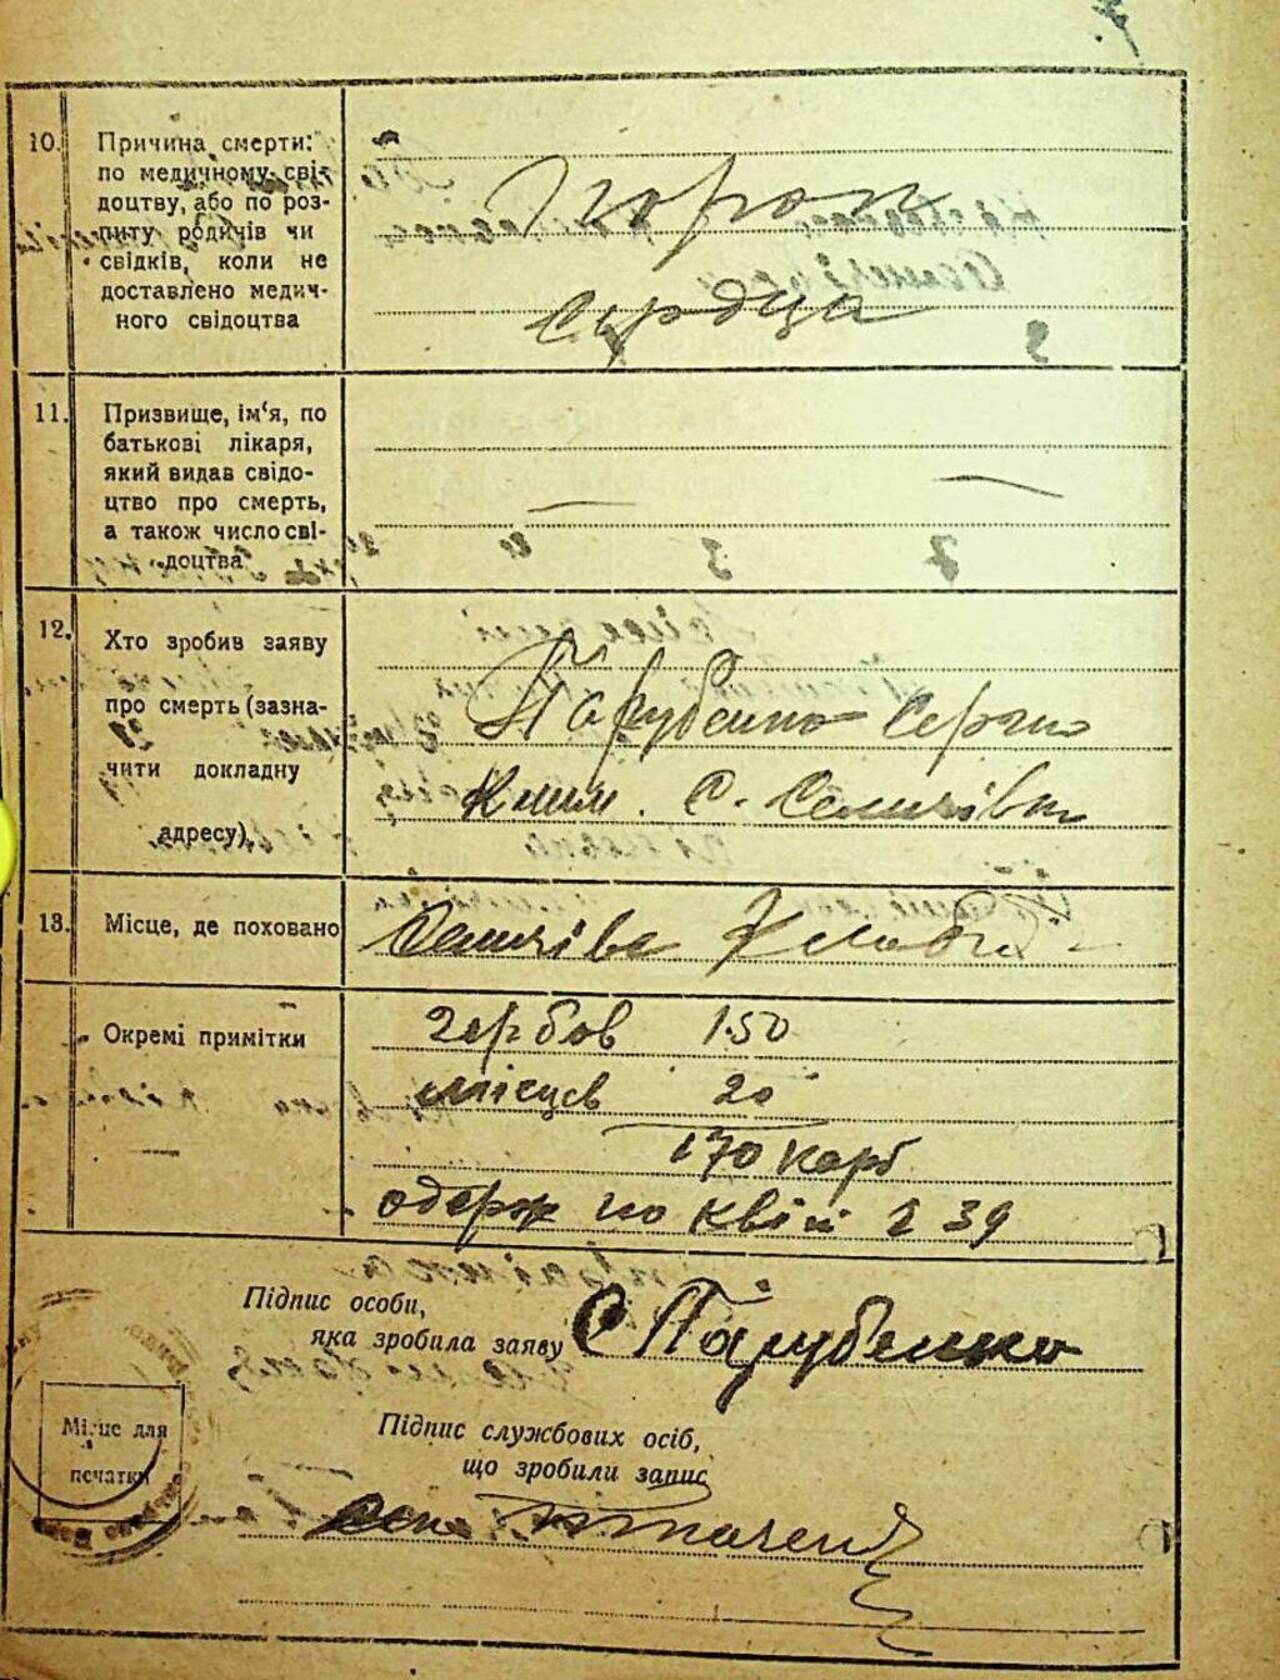 10.
Причина смерти:
по медичному сві-
доцтву, або по роз-
питу родичів чи
свідків, коли не
доставлено медич-
ного свідоцтва
Порок
сердца
11.
Призвище, ім‘я, по
батькові лікаря,
який видав свідо-
цтво про смерть,
а також число сві-
доцтва
12.
Хто зробив заяву
про смерть (зазна-
чити докладну
адресу)
Парубенко Сергій
Клим. С.
13.
Місце, де поховано
Окремі примітки
гербов 150
місцев 20
170 карб
одерж по квіт 2 39
Підпис особи,
яка зробила заяву
С Парубенко
Місце для
печатки
Підпис службових осіб,
що зробили запис